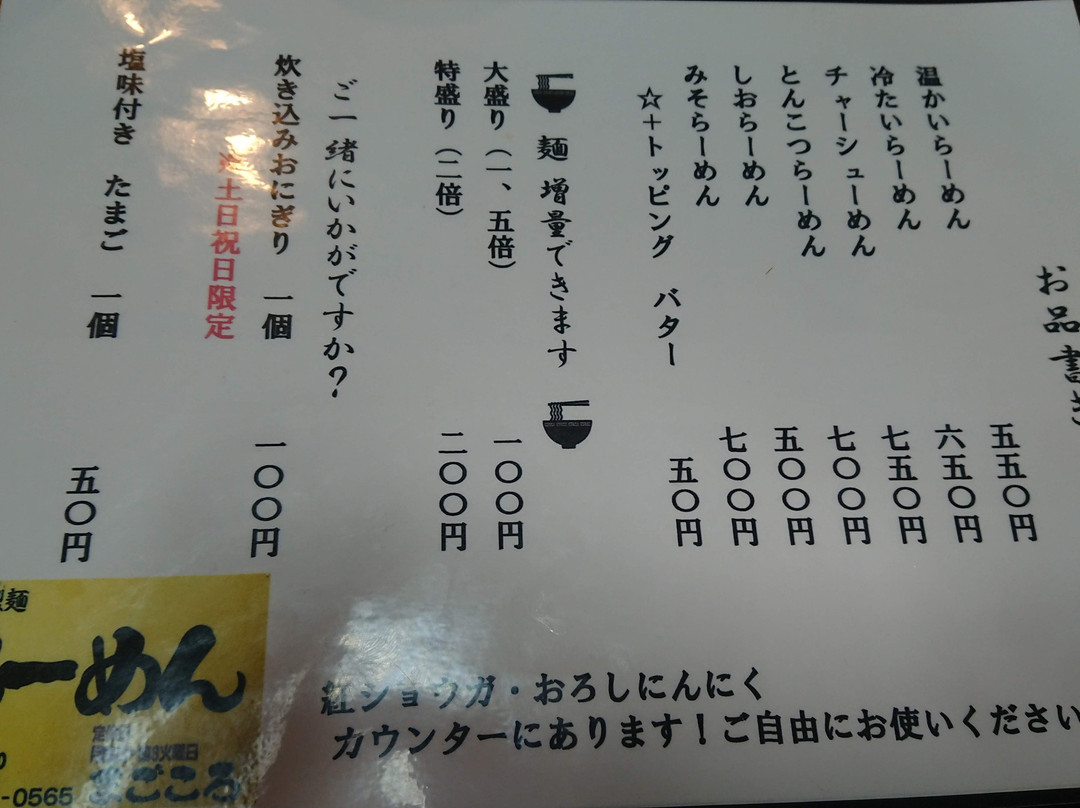 お品書き
温かいらーめん 五五〇円
冷たいらーめん 六五〇円
チャーシューめん 七五〇円
とんこつらーめん 七〇〇円
しおらーめん 五〇〇円
みそらーめん 七〇〇円
☆＋トッピング バター 五〇円
麺 増量できます
大盛り（一、五倍） 一〇〇円
特盛り（二倍） 二〇〇円
ご一緒にいかがですか？
炊き込みおにぎり 一個 一〇〇円
土日祝日限定
塩味付き たまご 一個 五〇円
紅ショウガ・おろしにんにく
カウンターにあります！ご自由にお使いください
麺
ーめん
3火曜日
まごころ
-0565